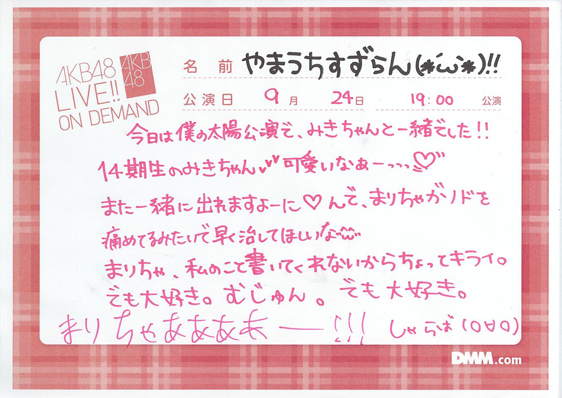 AKB48
LIVE!!
ON DEMAND
AKB
48
名 前 やまうちすずらん(*´ω`*)!!
公演日 9月 24日 19:00 公演
今日は僕の太陽公演で、みきちゃんと一緒でした!!
14期生のみきちゃん 可愛いなぁーっっ♡
また一緒に出れますよーに♡んで、まりちゃがノドを
痛めてるみたいで早く治してほしいな
まりちゃ、私のこと書いてくれないからちょってキライ。
でも大好き。むじゅん。でも大好き。
まりちゃあああぁー!!! しゃらば(0∀0)
DMM.com